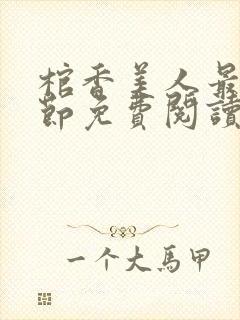 棺香美人最
節免費閱讀
一个大馬甲